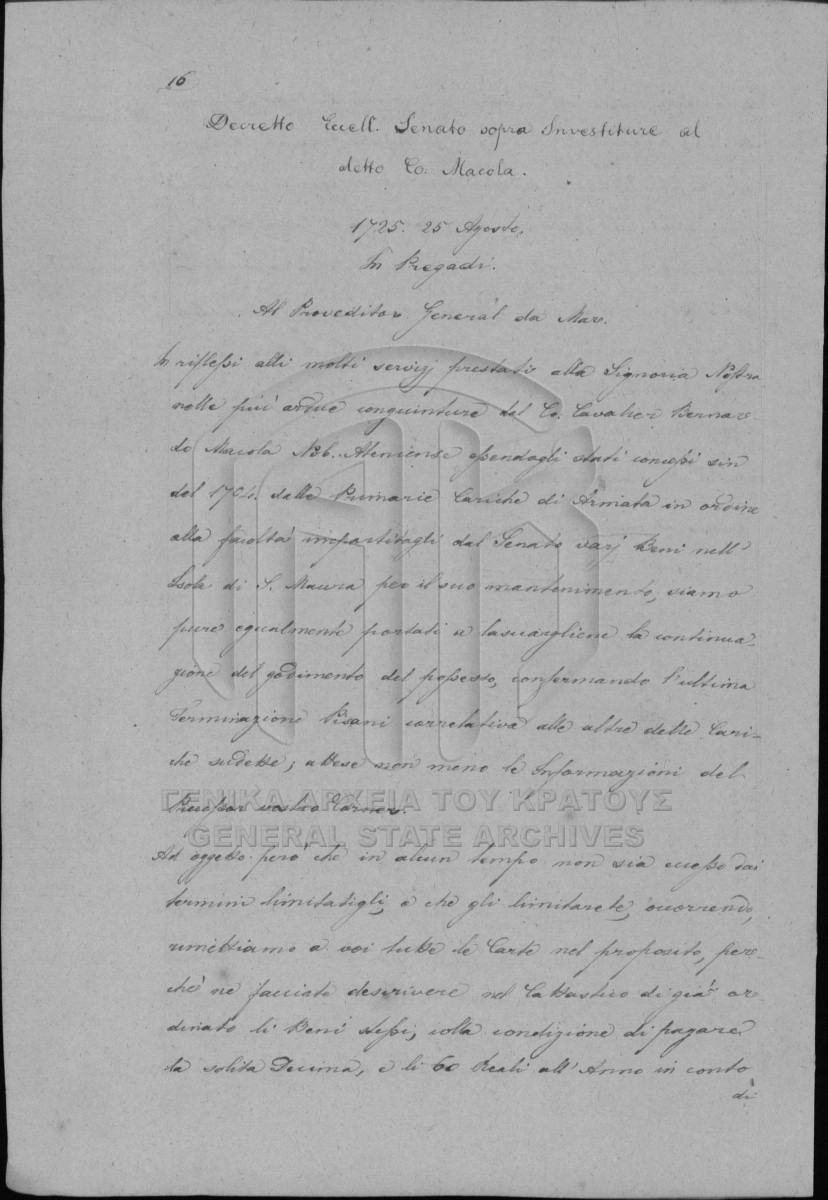 16
Decretto Eccell. Senato sopra Investiture al
detto Co. Macola.
1725. 25 Agosto.
In Pregadi.
Al Proveditor General da Mar.
In riflessi alli molti servizj prestati alla Signoria Nostra
nelle più ardue congiunture dal Co. Cavalier Bernar-
do Macola Nob. Ateniense essendogli stati concessi sin
del 1704. dalle Primarie Cariche di Armata in ordine
alla facoltà impartitagli dal Senato varj Beni nell'
Isola di S. Maura per il suo mantenimento, siamo
pure egualmente portati a lasciargliene la continua-
zione del godimento del possesso, confermando l'ultima
Terminazione Pisani correlativa alle altre delle Cari-
che sudette; attese non meno le Informazioni del
Precessor vostro Corner.
ΓΕΝΙΚΑ ΑΡΧΕΙΑ ΤΟΥ ΚΡΑΤΟΥΣ
GENERAL STATE ARCHIVES
Ad oggetto però che in alcun tempo non sia ecceppo dai
termini limitatigli, e che gli limitarete, occorrendo,
rimettiamo a voi tutte le Carte nel proposito, per-
chè ne facciate descrivere nel Cattastico di già or-
dinato li Beni stessi, colla condizione di pagare
la solita Decima, e li 60 Reali all' Anno in conto
di